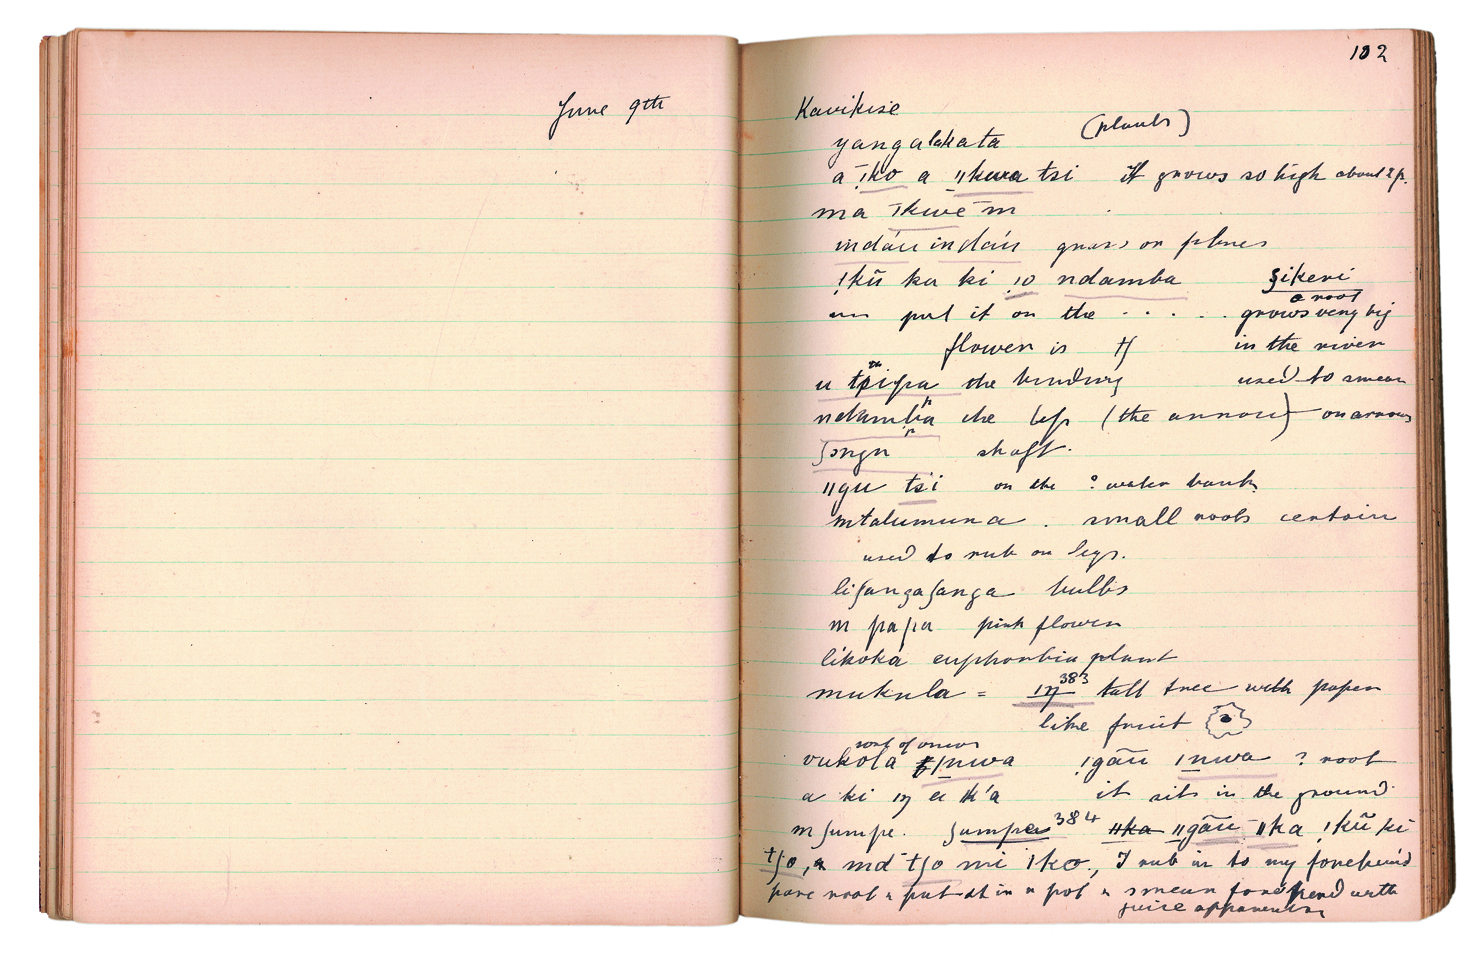 June 9th
102
Kavikise
yangalakata (plants)
a ǃko a ǁkwa tsi it grows so high about 2 f.
ma ǀkwe m
indáu indáu grass on planes
ǃkū ka ki ǃo ndamba ʒikeri
a root
put it on the . . . . . grows very big
flower is in the river
u the binding used to smear
ndamba the (the arrow) on arrows
shaft.
ǁgu tsi on the ? water bank
mtalumuna . small roots certain
used to rub on legs.
liʃangaʃanga bulbs
m papa pink flower
likoka euphorbia plant
mukula = ǀŋ 383 tall tree with paper
like fruit
sort of onion
vukola ǀnwa ǃgāu ǀnwa ? root
a ki ǀŋ a k'a it sits in the ground
mʃumpe. ʒumpe 384 ǁka ǁgāu ǁka ǃkū ki
tʃo, md tʃo mi ǀko, I rub in to my forehead
root & put it in a pot & smear forehead with
juice apparently